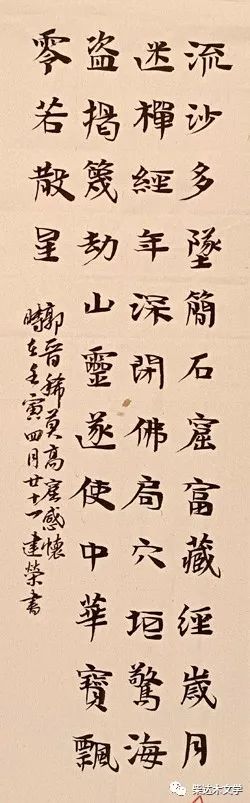 流沙多墜簡石窟富藏經歲月
迷禪經年深閉佛局穴垣驚海
盜揭篾劫山靈遂使中華寶飄
零若散星
郭晉稀莫高窟感懷
時在壬寅四月廿十一建榮書
柴达木文学